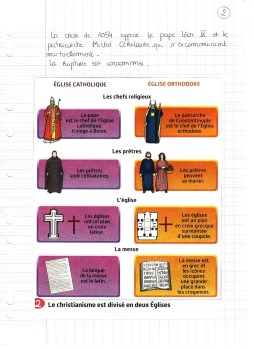 2
La crise de 1054 oppose le pape Léon IX et le
patriarche Michel Cérulaire qui s'excommunient
mutuellement.
La rupture est consommée.
ÉGLISE CATHOLIQUE
ÉGLISE ORTHODOXE
Les chefs religieux
Le pape
est le chef de l'Église
catholique.
Il siège à Rome.
Le patriarche
de Constantinople
est le chef de l'Église
orthodoxe
Les prêtres
Les prêtres
sont célibataires.
Les prêtres
peuvent
se marier.
L'église
Les églises
ont un plan
en croix
latine.
Les églises
ont un plan
en croix grecque
surmontée
d'une coupole.
La messe
La langue
de la messe
est le latin.
La messe est
en grec et
les icônes
occupent
une grande
place dans
les croyances.
2 Le christianisme est divisé en deux Églises